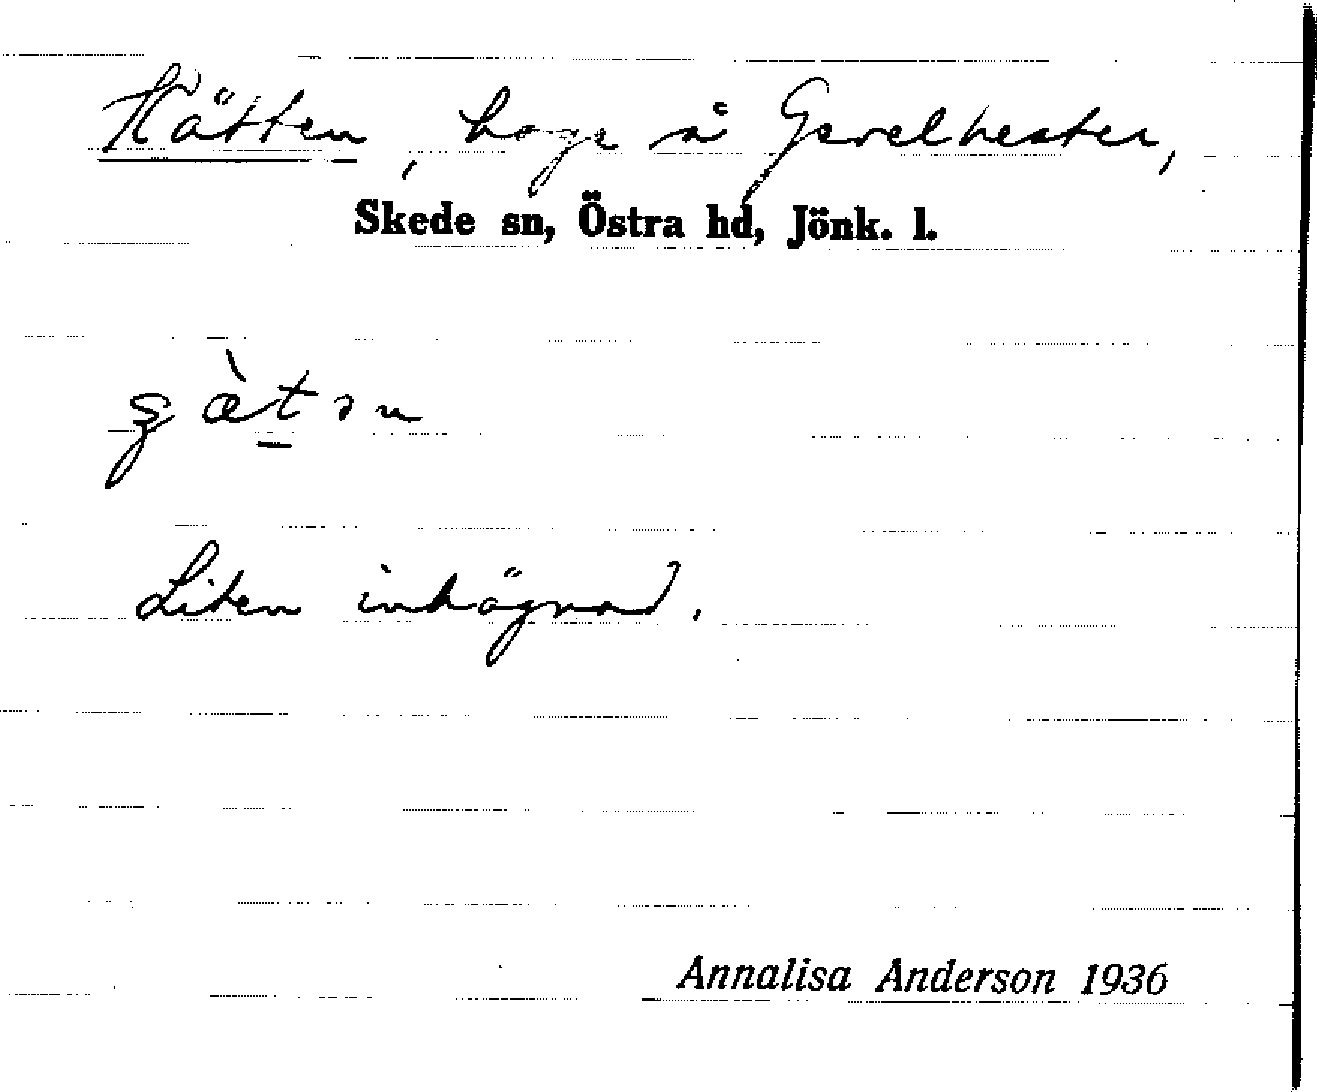 Kätten, hage å Gavelhester,
Skede sn, Östra hd, Jönk. l.
Liten inhägnad.
Annalisa Anderson 1936